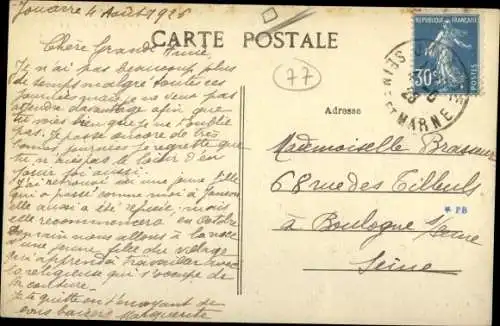 Jouarre 4 Août 1926
Chère Grande Amie,
Je n'ai pas beaucoup plus
de temps malgré toutes ces
journées quand je ne veux pas
attendre davantage afin que
tu vois bien que je ne t'oublie
pas. Je passe encore de très
bonnes journées je regrette que
tu n'aies pas le loisir d'en
jouir toi aussi.
J'ai retrouvé ici une jeune fille
qui a passé comme moi à
elle aussi a été refusée: mais
elle recommencera en Octobre
Demain nous allons à la noce
d'une jeune fille du village
qui apprend à travailler avec
la religieuse qui s'occupe de
la couture.
Je te quitte en t'envoyant de
bons baisers Marguerite
CARTE POSTALE
77
Adresse
Mademoiselle Brasseur
68 rue des Tilleuls
à Boulogne s/Seine
Seine
* PB
REPUBLIQUE FRANÇAISE
30
POSTES
SEINE ET MARNE